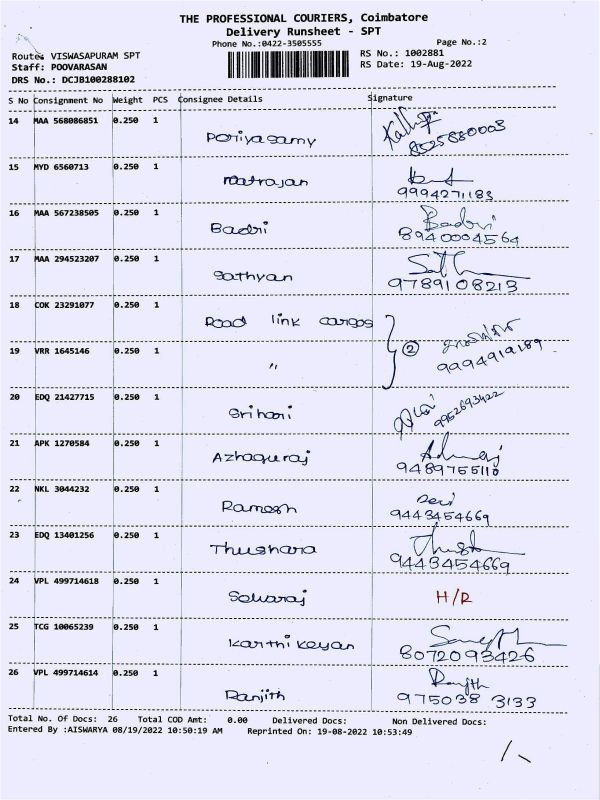 THE PROFESSIONAL COURIERS, Coimbatore
Delivery Runsheet - SPT
Phone No.:0422-3505555 Page No.:2
Route: VISWASAPURAM SPT RS No.: 1002881
Staff: POOVARASAN RS Date: 19-Aug-2022
DRS No.: DCJB100288102
S No Consignment No Weight PCS Consignee Details Signature
14 MAA 568086851 0.250 1 Poriyasamy 8525880003
15 MYD 6560713 0.250 1 Natrajan 9994271183
16 MAA 567238505 0.250 1 Badri Badri 8940004564
17 MAA 294523207 0.250 1 Sathyan 9789108213
18 COK 23291077 0.250 1 Road link cargos
19 VRR 1645146 0.250 1 〃 2 9994919189
20 EDQ 21427715 0.250 1 Srihari 9952693422
21 APK 1270584 0.250 1 Azhaguraj 9489755110
22 NKL 3044232 0.250 1 Ramesh 9443454669
23 EDQ 13401256 0.250 1 Thushara 9443454669
24 VPL 499714618 0.250 1 Selvaraj H/R
25 TCG 10065239 0.250 1 Karthikeyan 8072093426
26 VPL 499714614 0.250 1 Ranjith Ranjith 975038 3133
Total No. Of Docs: 26 Total COD Amt: 0.00 Delivered Docs: Non Delivered Docs:
Entered By :AISWARYA 08/19/2022 10:50:19 AM Reprinted On: 19-08-2022 10:53:49